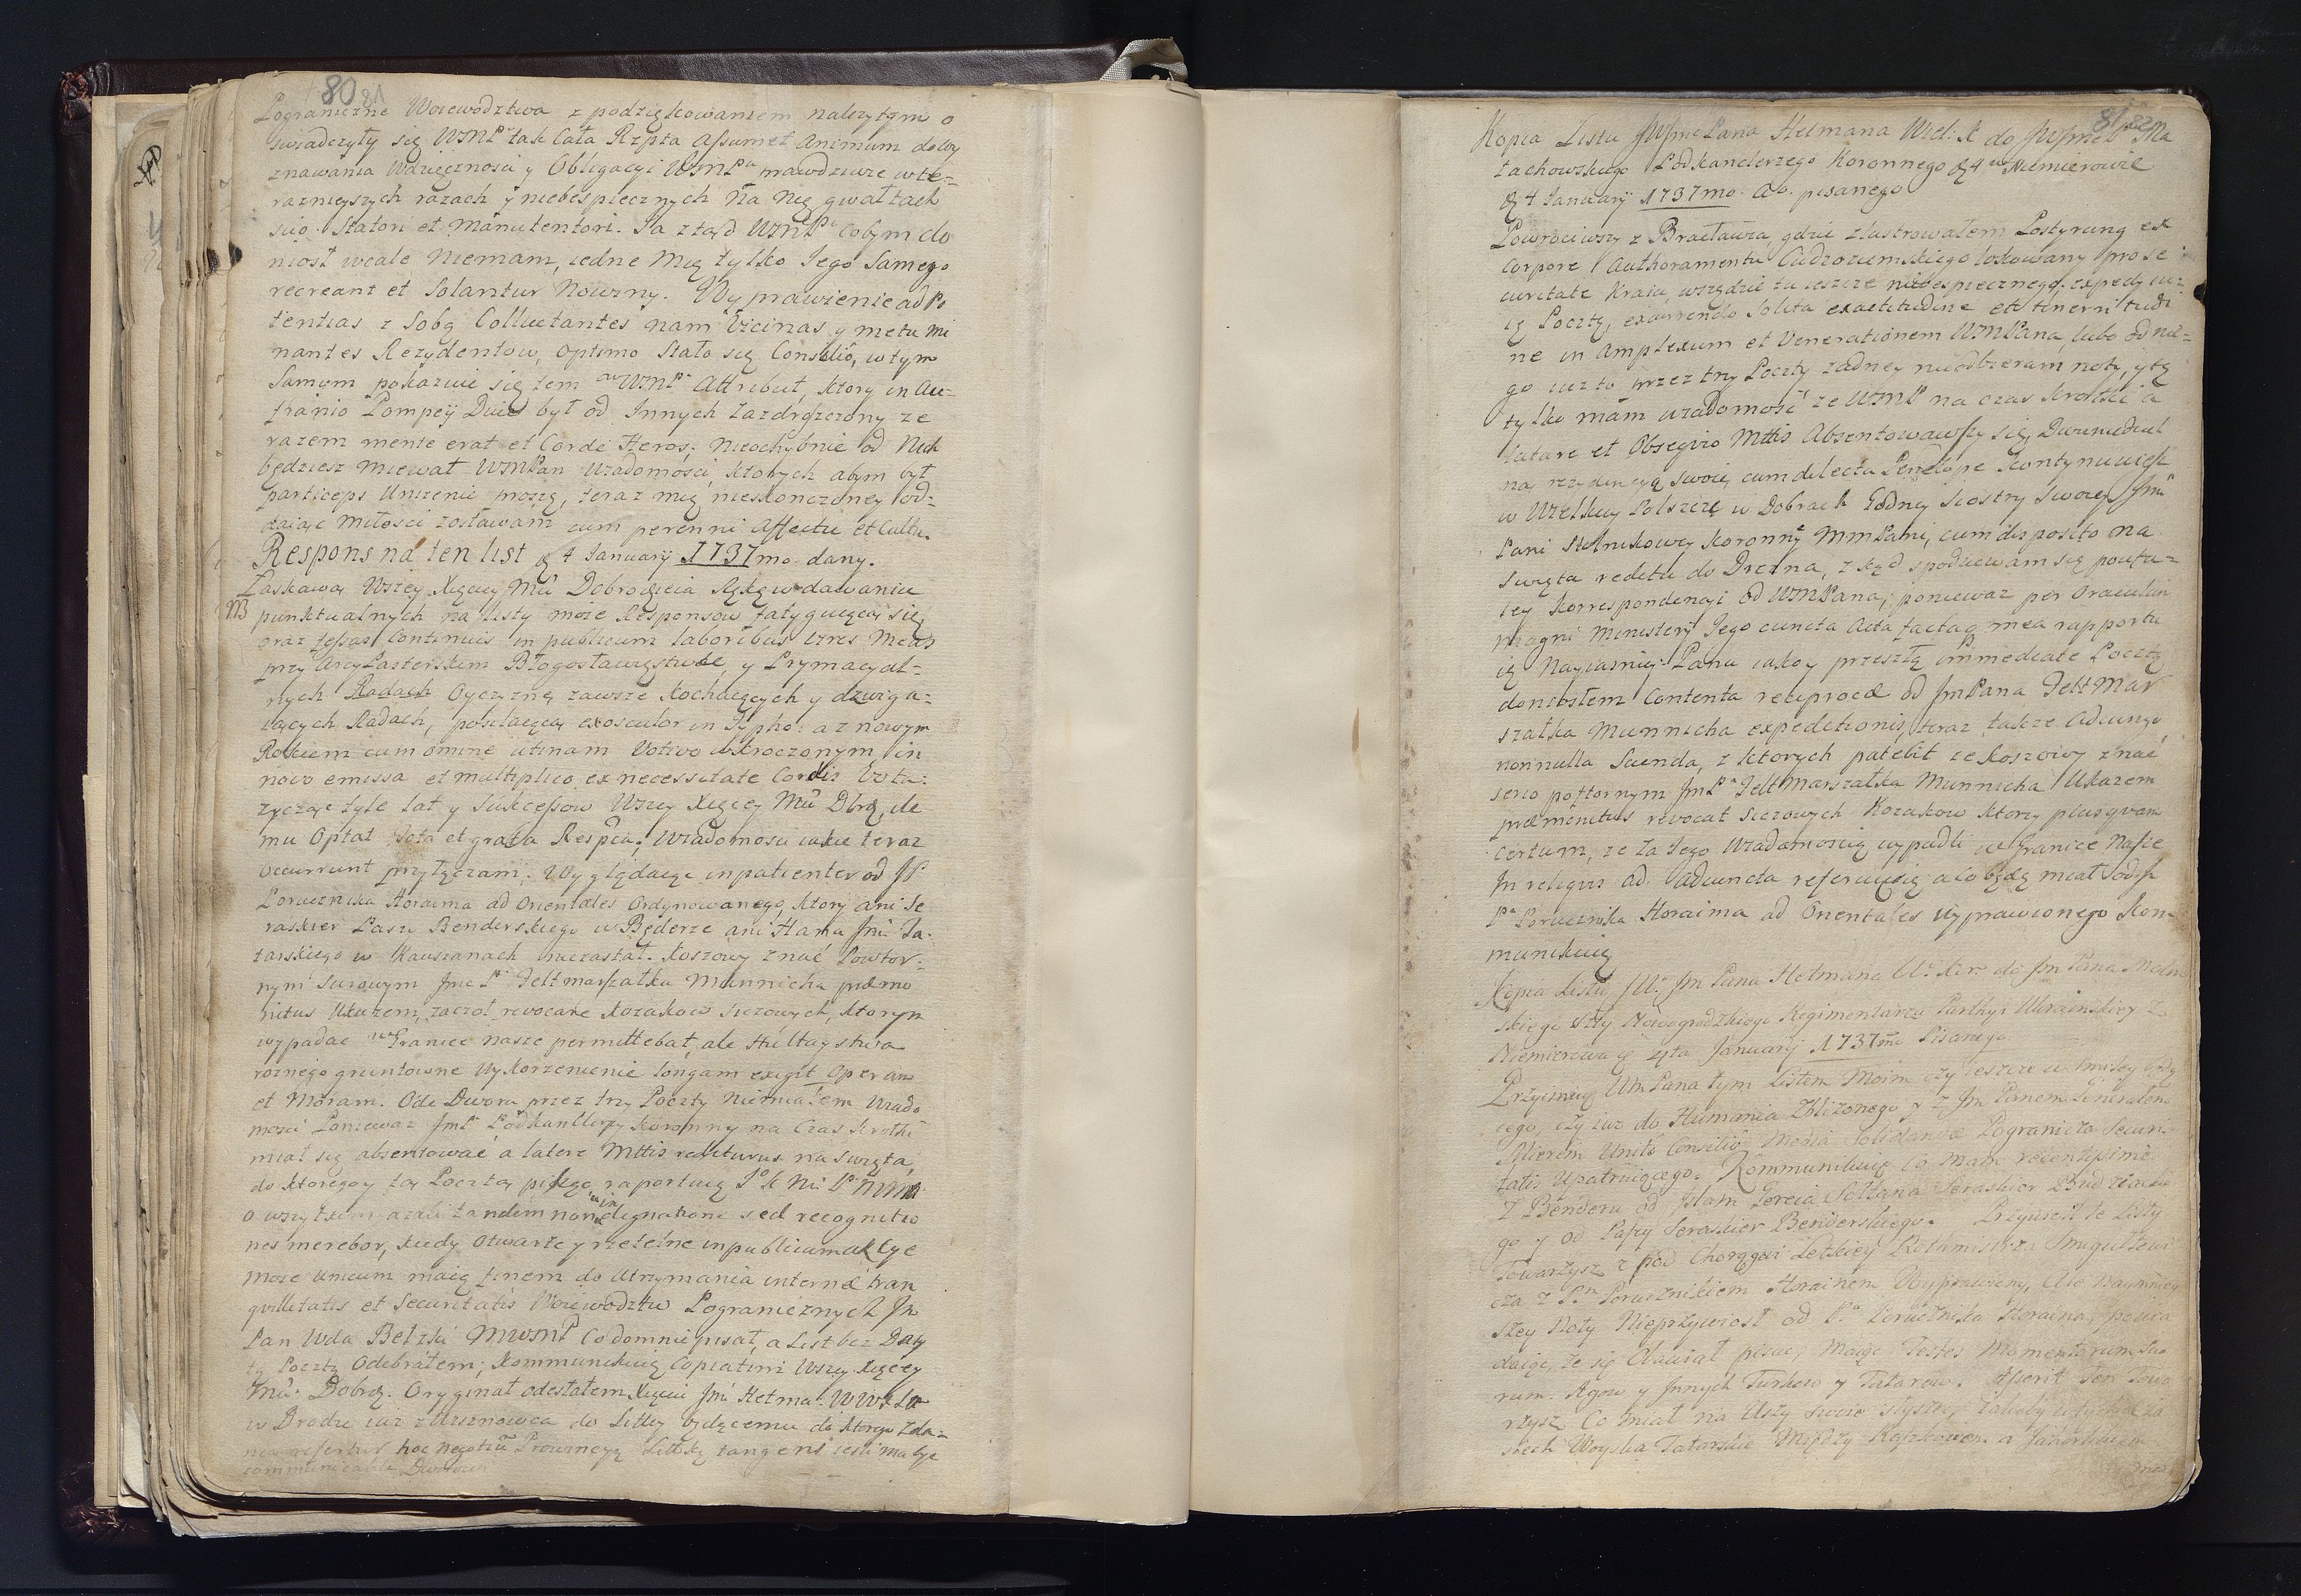 80 81
Pograniczne Woiewodztwa z podziękowaniem należytym o
swiadczyły się WMP tak Cała Rzpta assumet Animum dowy
znawania Wdzięcznosci y Obligacyi WMPu prawdziwie w te=
raznieyszych razach y niebespiecznych na Nię gwałtach
suo Statori et Manutentori. Ja z tąd WMPu cobym do
niosł wcale Niemam, iedne Mię tylko Jego Samego
recreant et Solantur Nowiny. Wyprawienie ad Po
tentias z Sobą Colluctantes nam Vicinas y metu mi
nantes Rezydentow, Optimo Stało się Consilio, w tym
Samym pokazuie się ten WMP Attribut, ktory in Au=
franio Pompeij Duce był od Innych zazdrszczony ze
razem mente erat et Corde Heros; Nieochybnie od Nich
będziesz miewał WMPan Wiadomosci, ktorych abym był
particeps Unizenie proszę, teraz mię nieskonczoney od=
daiąc miłosci zostawam cum perenni Affectu et Cultu.
Respons na ten list 4 Januarij 1737mo dany.
Łaskawą Wszey Xiącey Mci Dobrodzieia Rękę w dawaniu
NB punktualnych na listy moie Responsow fatyguiącą się
oraz fessas Continuis in publicum laboribus Vires Meas
przy ArcyPasterskim Błogosławięstwie y Prymacyal=
nych Radach Oyczyznę zawsze kochaiących y dzwiga=
iących Radach, posilaiącą exosculor in Sypho: a z nowym
Rokiem cum omine utinam Votivo wkroczonym, in
novo emissa et multiplico ex necessitate Cordis Vota:
zycząc tyle lat y Sukcessow Wszey Xiącey Mci Dbrą, ile
mu Optat tota et grata Respca; Wiadomosci iakie teraz
occurrunt przyłączam; Wyglądaiąc inpatienter od JP
Porucznika Horaima ad Orientales Ordynowanego, ktory ani Se
raskier Paszi Benderskiego w Będerze ani Hana Jmci Ta=
tarskiego w Kauszanach niezastał. Koszowy znać Powtor=
nym Surowym Jmc Pa Feltmarszałka Munnicha præmo
nitus Ukazem, zaczoł revocare Kozakow Siczowych, ktorym
wypadac w Granice nasze permittebat, ale Hultaystwa
roznego gruntowne Wykorzenienie longam exigit Operam
et Moram. Ode Dworu przez trzy Poczty Niemiałem Wiado
mosci Poniewaz JmP Podkanclerzy Koronny na Czas krotki
miał się absentować a latere Mttis rediturus na Swięta,
do ktorego y tą Pocztą piszę raportuię
o wszytkim azali tandem non in dignationi sed recognitio
nes merebor, kiedy Otwarte y rzetelne in publicum allye
moie Unicum maią finem do Utrzymania internæ tran
quillitatis et Securitatis Woiewodztw Pogranicznych Jm
Pan Wda Bełzki MWMP Co do mnie pisał, a List bez Daty
tą Pocztą Odebrałem; Kommunikuię Copiatim Wszey Xiącey
Mci Dobrą. Oryginał odesłałem Xięciu Jmci Hetma: WWXLo
w Drodze iuz z Uscznowca do Litwy będącemu do ktorego zda=
nia refertur hoc negotiu Prowincyą Littką tangens iesli ma byc
communicabile Dworowi
81 82
Kopia Listu JWJmc Pana Hetmana Wiel: K do JWJmci Pa Ma
łachowskiego Podkanclerzego Koronnego w Niemierowie
4 Januarij 1737mo. Ao. pisanego
Powrociwszy z Bracławia, gdzie zlustrowałem Postyrung ex
Corpore Authoramentu Cudzoziemskiego lokowany pro se
curitate Kraiu, wszędzie tu ieszcze niebespiecznego, expedyiu=
ię Pocztę, exaurendo Solita exactitudine et teneritudi
ne in Amplexum et Venerationem WMPana, lubo od nie=
go iuz to przez trzy Poczty zadney nieodbieram noty, y tę
tylko mam wiadomosć ze WMP na czas krotki a
latare et Obsequio Mttis Absentowawszy się, Dwuniedziel
ną rezydencyą swoię cum delecta Penelope Kontynuuiesz
w Wielkiey Polszcze w Dobrach Godney Siostry Swoiey Jmci
Pani Stolnikowy Koronny MmPani, cum disposito na
Swięta reditu do Drezna, z kąd spodziewam się poufa=
łey Korrespondencyi Od WMPana, poniewaz per Oraculum
magni Ministerij Jego cuncta Acta factaq mea rapportu
ię Nayiasniey: Panu iakoy przeszłą immediate Pocztą
doniosłem Contenta reciprocæ od JmPana Felt Mar
szałka Munnicha expeditionis, teraz takze Adiungo
nonnulla Scienda, z ktorych patebit ze Koszowy znać
serio powtornym JmPa FeltMarszałka Munnicha Ukazem
præmonitus revocat Siczowych Kozakow ktorzy plus quam
certum, ze za Jego Wiadomoscią wypadli w Granice Nasze
In reliquis ad Adiuncta referuię się a co będę miał od Jm
Pa Porucznika Horaima ad Orientales Wyprawionego Kom=
munikuię
Kopia Listu JW: Jm Pana Hetmana W: Kor do Jm Pana
skiego Nowogrodzkiego Regimentarza Parthyi Ukrainskiey Z
Niemierowa 4ta Januarij 1737mo Pisanego
Przyimuię Wm Pana tym Listem Moim czy ieszcze w
cego, czy iuz do Humania Zblizonego y z Jm Panem Generałem
Mierem Unito Consilio Media Solidandæ Pogranicza Securi=
tatis Upatruiącego. Kommunikuię Co mam recentissime
Z Benderu od Jslam Gereia Sołtana Seraskier Budziackie
go y od Paszy Seraskier Benderskiego. Przyniosł te Listy
Towarzysz z pod Chorągwi Lekkiey Rothmistrza
cza z Pm Porucznikiem Horainem Wyprawiony, Ale
szey Noty Nieprzyniosł od Pa Porucznika Horaina, powia
daiąc, ze się Obawiał pisac, Maiąc Testes Momentorum Suo
rum Agow y Innych Turkow y Tatarow. Asserit ten Towa
rzysz Co miał na Uszy swoie słyszec,
siech Woyska Tatarskie Między